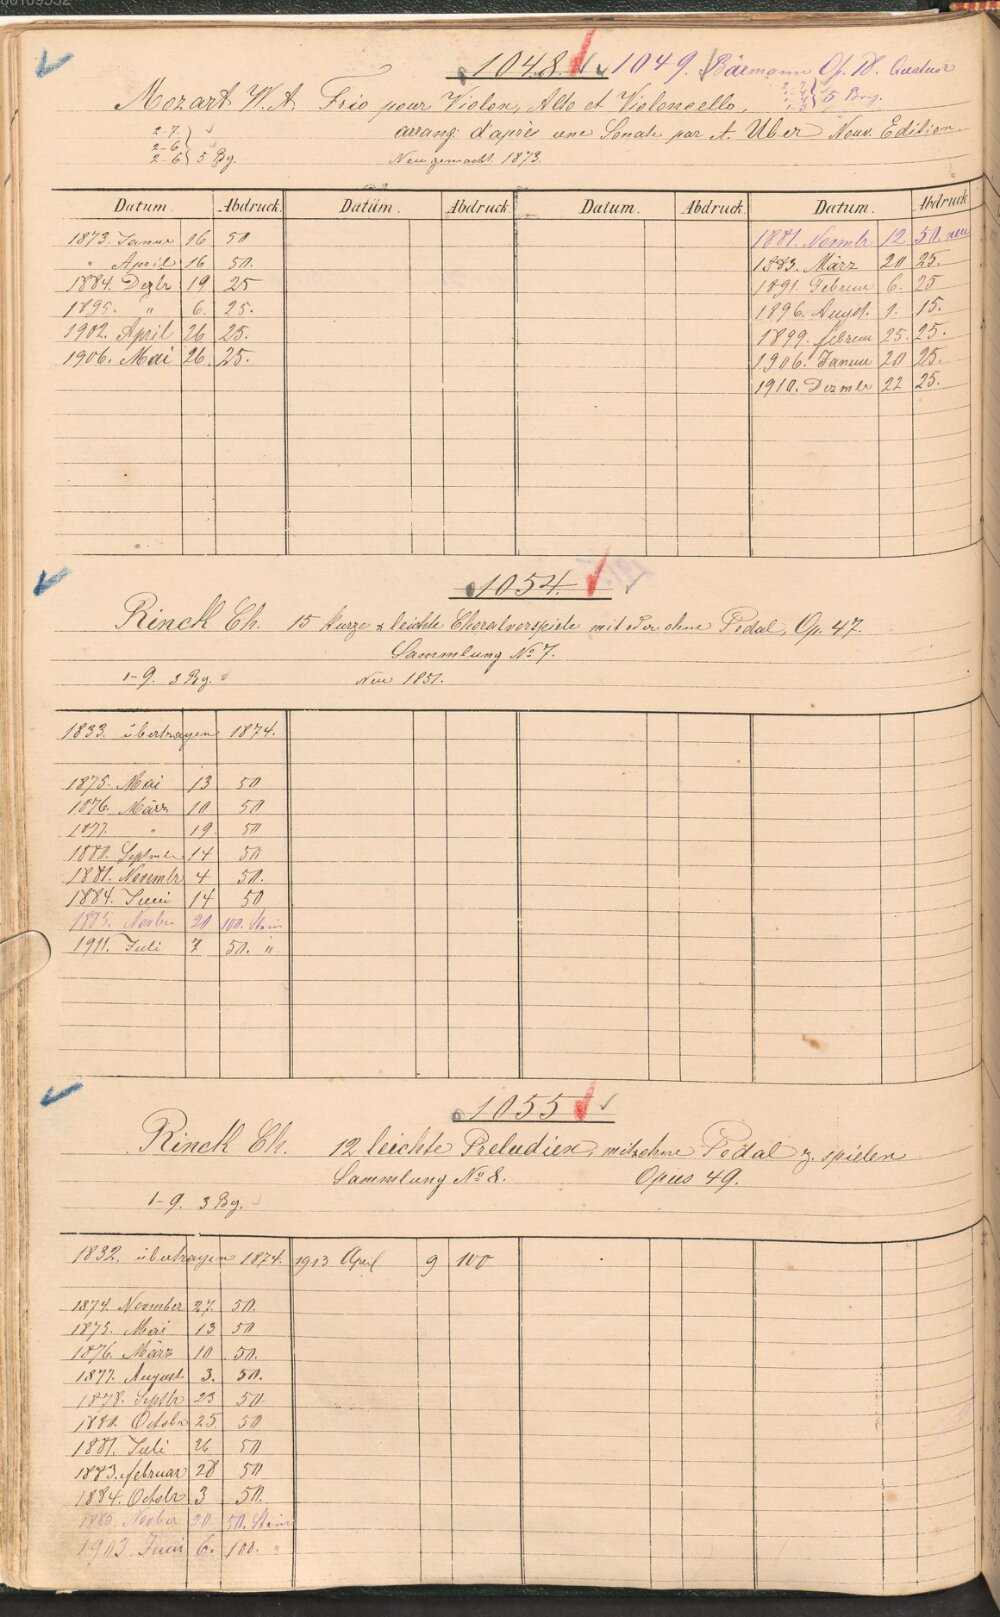 1048. 1049. Bärmann Op. 18. Quatuor
Mozart W. A. Trio pour Violon, Alto et Violoncello,
5 Bg.
arrang. d'après une Sonate par A. Uber Nouv. Edition.
2-7.
2-6.
2-6 5 Bg.
Neu gemacht 1873.
Datum. Abdruck. Datum. Abdruck. Datum. Abdruck. Datum. Abdruck
1873. Januar 16 50
" April 16 50.
1884. Dezbr 19 25
1895. " 6. 25.
1902. April 26 25.
1906. Mai 26. 25.
1881. Novmbr 12 50. neu
1883. März 20 25.
1891. Februar 6. 25
1896. August. 1. 15.
1899. februar 25. 25.
1906. Januar 20 25.
1910. Dezmbr 22 25.
1054.
Rinck Ch. 15 kurze u leichte Choralvorspiele mit oder ohne Pedal, Op. 47.
Sammlung No 7.
1-9. 3 Bg. Neu 1851.
1833. übertragen 1874.
1875. Mai 13 50
1876. März 10 50
1877. " 19 50
1880. Septmbr 14 50
1881. Novembr 4 50.
1884. Juni 14 50
1885. Novber 20 100. Stein
1911. Juli 7 50. "
1055
Rinck Ch. 12 leichte Preludien, mit u ohne Pedal z. spielen
Sammlung No 8. Opus 49.
1-9. 3 Bg.
1832. übertragen 1874.
1874. November 27. 50.
1875. Mai 13 50
1876. März 10 50.
1877. August 3. 50.
1878. Septbr 23 50
1880. Octobr 25 50
1881. Juli 26 50
1883. februar 28 50
1884. Octobr 3 50.
1885. Novber 20. 50. Stein
1903. Juni 6. 100. "
1913 April 9 100